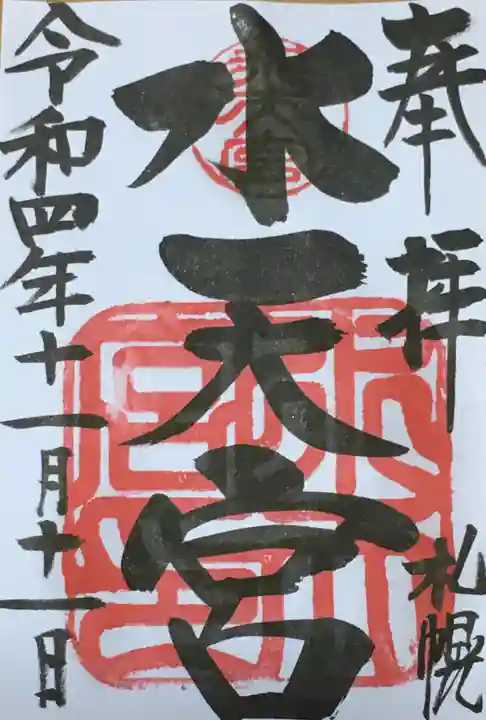 奉拝
札幌
水天宮
令和四年十一月十一日